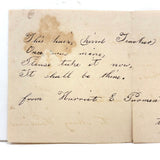 This hair, kind Teacher,
Once was mine,
Please take it now,
It shall be thine.
from Harriet E.